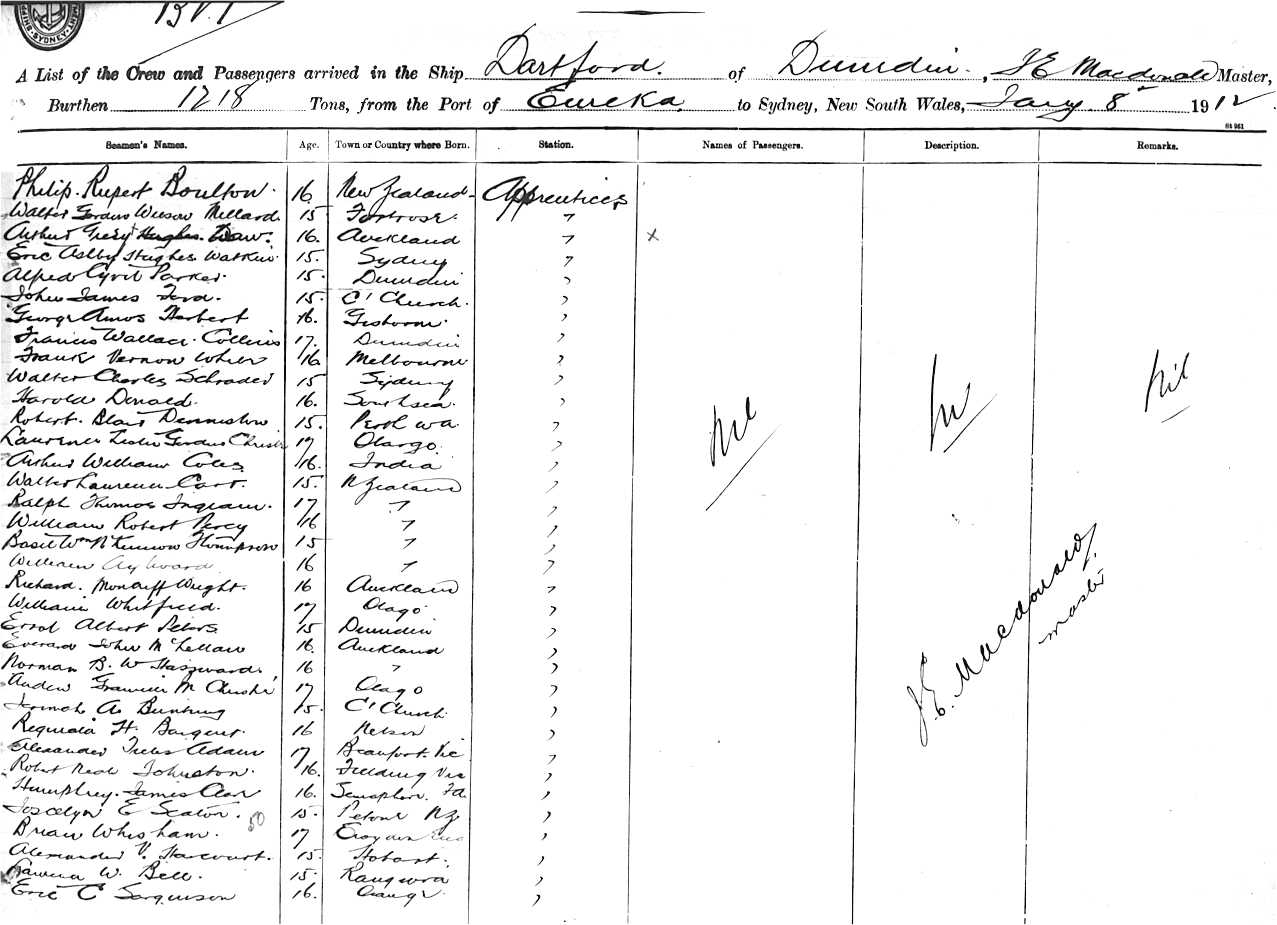 SYDNEY
A List of the Crew and Passengers arrived in the Ship Dartford. of Dunedin, J E Macdonald Master,
Burthen 1218 Tons, from the Port of Eureka to Sydney, New South Wales, Jany 8 1912
Seamen's Names. Age. Town or Country where Born. Station. Names of Passengers. Description. Remarks.
Philip Rupert Boulton 16 New Zealand Apprentices
Walter Gordon Wilson Millard 15 Fortrose "
Arthur Hughes 16. Auckland " x
Eric Ashby Hughes Watkin 15. Sydney "
Alfred Cyril Parker 15. Dunedin "
John James Ford. 15. C'Church. "
George Amos Herbert 16. Gisborne "
Francis Wallace Collins 17. Dunedin "
Frank Vernon 16 Melbourne "
Walter Charles Schrader 15 Sydney "
Harold Donald. 16. Southsea. "
Robert Blair Denniston 15. Perth WA "
Laurence Leslie Gordon 17 Otago "
Arthur William Coles 16. India "
Walter Laurence 15. N Zealand "
Ralph Thomas Ingram. 17 " "
William Robert Percy 16 " "
Basil Wm Thompson 15 " "
William Ayward 16 " "
Richard Moncrieff Wright. 16 Auckland "
William Whitfield. 17 Otago "
Errol Albert Peters 15 Dunedin "
Everard John McLellan 16. Auckland "
Norman B. W. 16 " "
M Christie 17 Otago "
A. Bunting 15. C'Church "
H. 16 Nelson "
Alexander Adam 17 Beaufort. Vic "
Robert Johnston 16. Fielding "
Humphrey James 16. "
Joscelyn E Seaton. 15. Petone NZ "
50
Brian Whisham. 17 Croydon "
Alexander V. Harcourt. 15. Hobart. "
W. Bell 15. Rangiora "
Eric C Sarginson 16. "
Nil
Nil
J E. Macdonald,
master